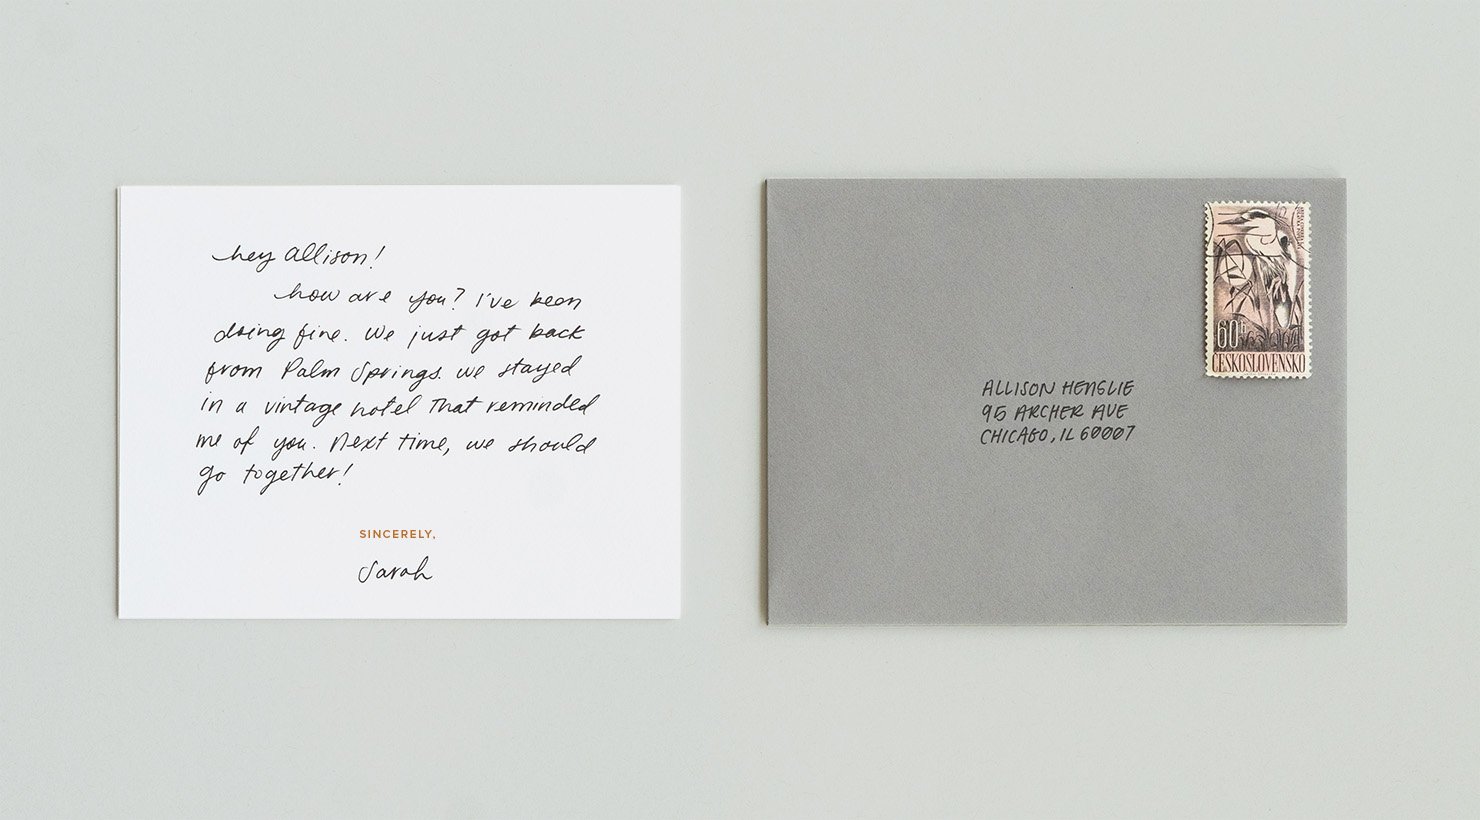 hey allison!
how are you? I've been
doing fine. We just got back
from Palm Springs. we stayed
in a vintage hotel that reminded
me of you. Next time, we should
go together!
SINCERELY,
Sarah
ALLISON HENGLIE
95 ARCHER AVE
CHICAGO, IL 60007
60h
ČESKOSLOVENSKO